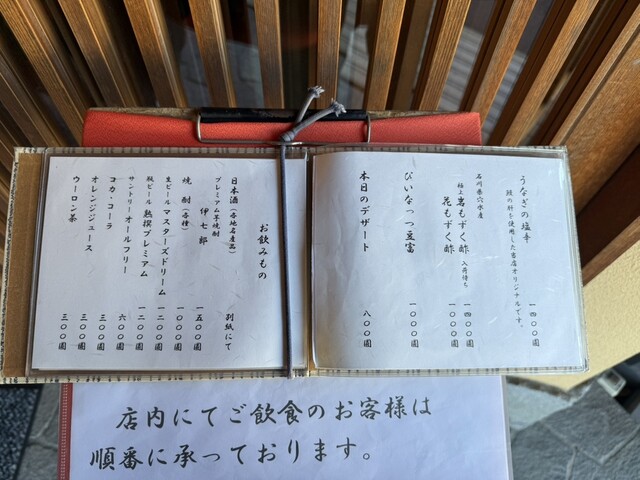 うなぎの塩辛
鰻の肝を使用した当店オリジナルです。
一四〇〇圓
石川県穴水産
極上岩もずく酢 入荷待ち
一四〇〇圓
花もずく酢
一〇〇〇圓
ぴいなっつ豆富
一〇〇〇圓
本日のデザート
八〇〇圓
お飲みもの
日本酒（各地名産品）
別紙にて
プレミアム芋焼酎
伊七郎
一五〇〇圓
焼酎（各種）
一〇〇〇圓
生ビール マスターズドリーム
一二〇〇圓
瓶ビール 熟撰プレミアム
一二〇〇圓
サントリーオールフリー
六〇〇圓
コカ・コーラ
三〇〇圓
オレンジジュース
三〇〇圓
ウーロン茶
三〇〇圓
店内にてご飲食のお客様は
順番に承っております。